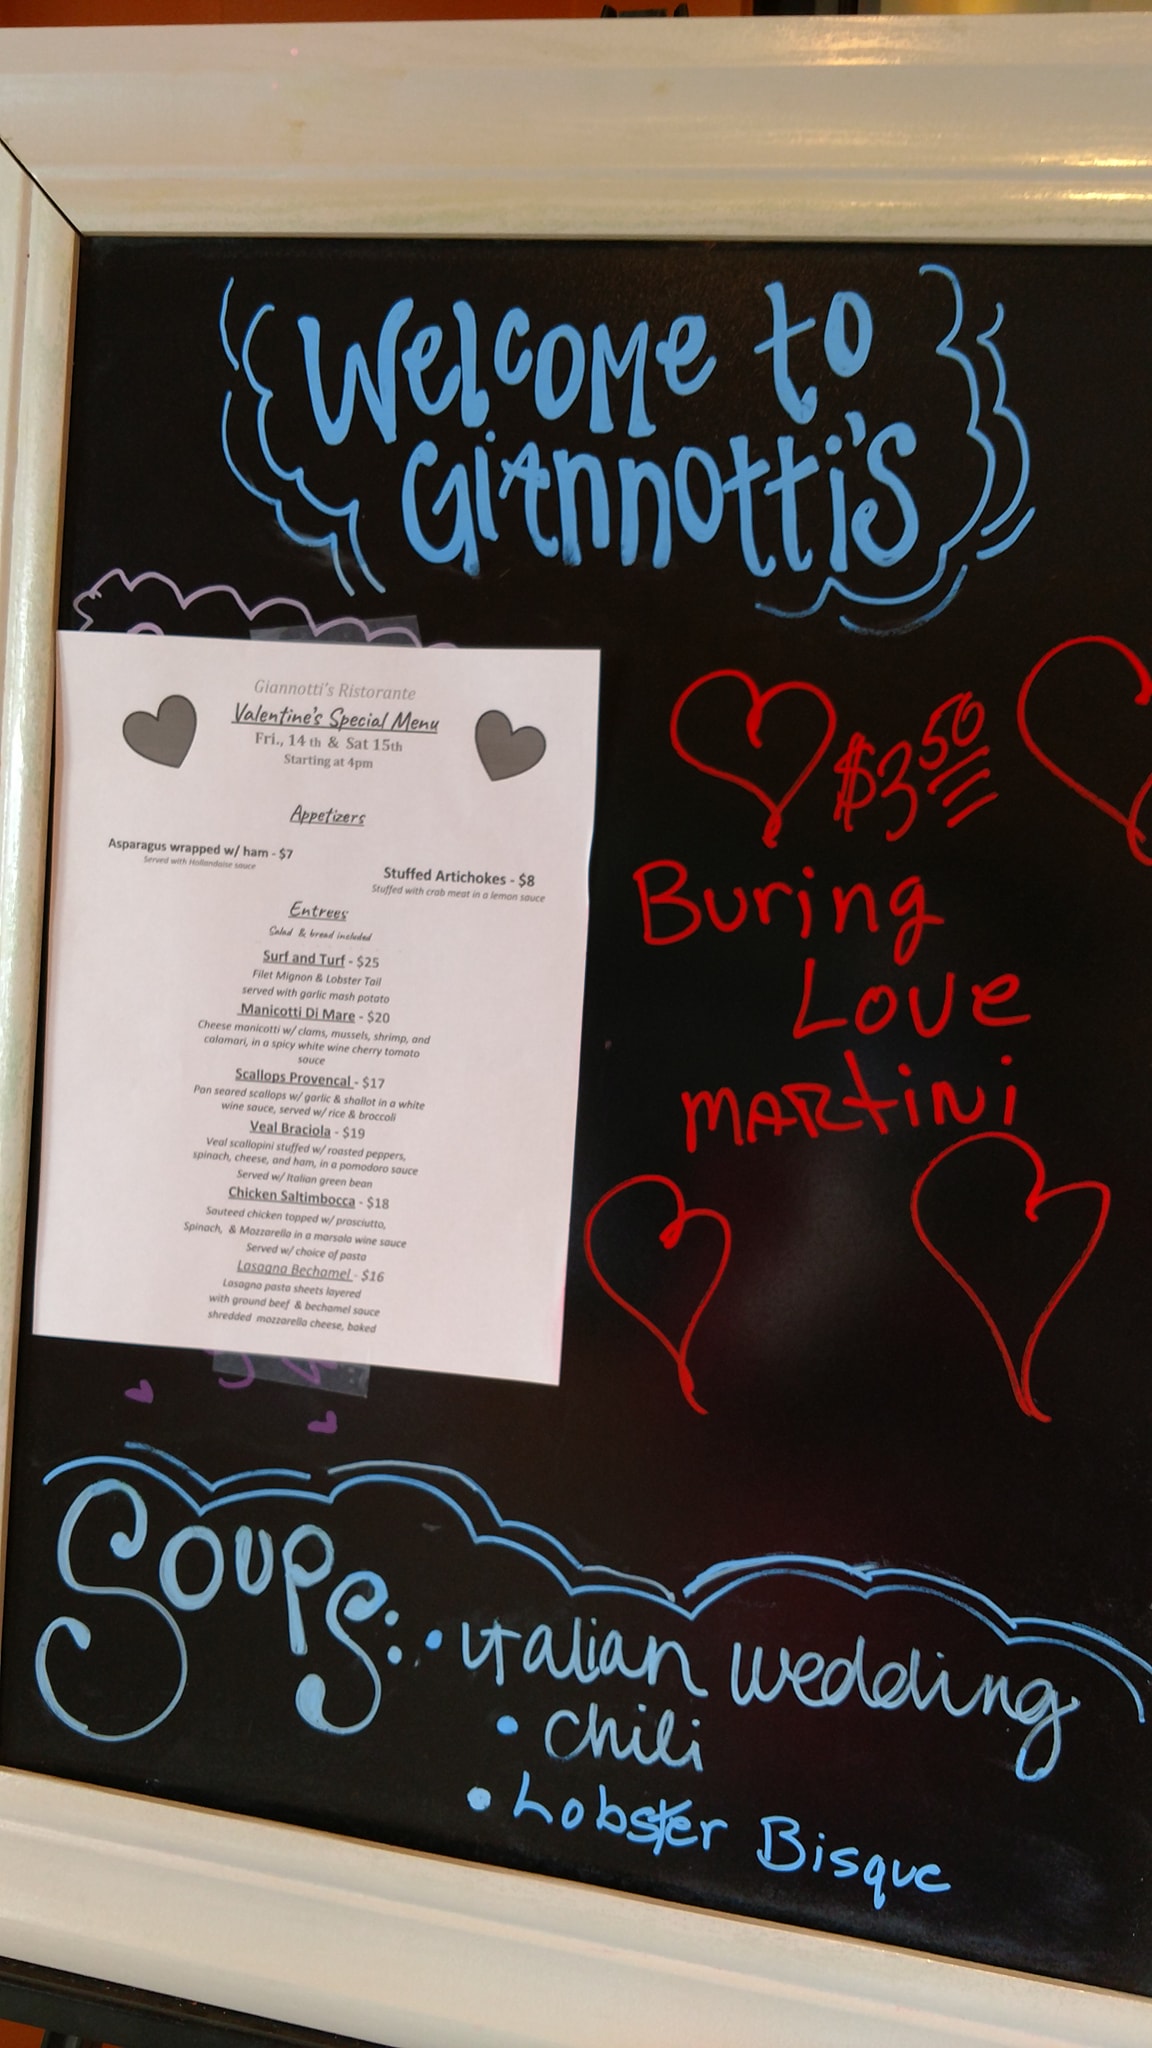 Welcome to
Giannotti's
Giannotti's Ristorante
Valentine's Special Menu
Fri., 14 th & Sat 15th
Starting at 4pm
Appetizers
Asparagus wrapped w/ ham - $7
Served with Hollandaise sauce
Stuffed Artichokes - $8
Stuffed with crab meat in a lemon sauce
Entrees
Salad & bread included
Surf and Turf - $25
Filet Mignon & Lobster Tail
served with garlic mash potato
Manicotti Di Mare - $20
Cheese manicotti w/ clams, mussels, shrimp, and
calamari, in a spicy white wine cherry tomato
sauce
Scallops Provencal - $17
Pan seared scallops w/ garlic & shallot in a white
wine sauce, served w/ rice & broccoli
Veal Braciola - $19
Veal scallopini stuffed w/ roasted peppers,
spinach, cheese, and ham, in a pomodoro sauce
Served w/ Italian green bean
Chicken Saltimbocca - $18
Sauteed chicken topped w/ prosciutto,
Spinach, & Mozzarella in a marsala wine sauce
Served w/ choice of pasta
Lasagna Bechamel - $16
Lasagna pasta sheets layered
with ground beef & bechamel sauce
shredded mozzarella cheese, baked
$3 50
Buring
Love
martini
Soups: • Italian Wedding
• Chili
• Lobster Bisque